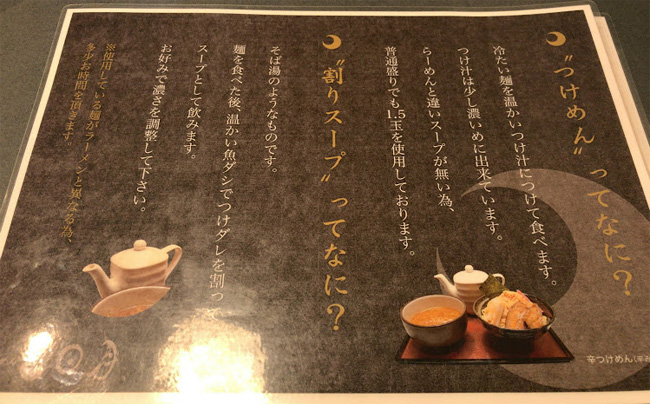 “つけめん”ってなに？
冷たい麺を温かいつけ汁につけて食べます。
つけ汁は少し濃いめに出来ています。
らーめんと違いスープが無い為、
普通盛りでも1.5玉を使用しております。
“割りスープ”ってなに？
そば湯のようなものです。
麺を食べた後、温かい魚ダシでつけダレを割って
スープとして飲みます。
お好みで濃さを調整して下さい。
※使用している麺がラーメンと異なる為、
多少お時間を頂きます。
辛つけめん